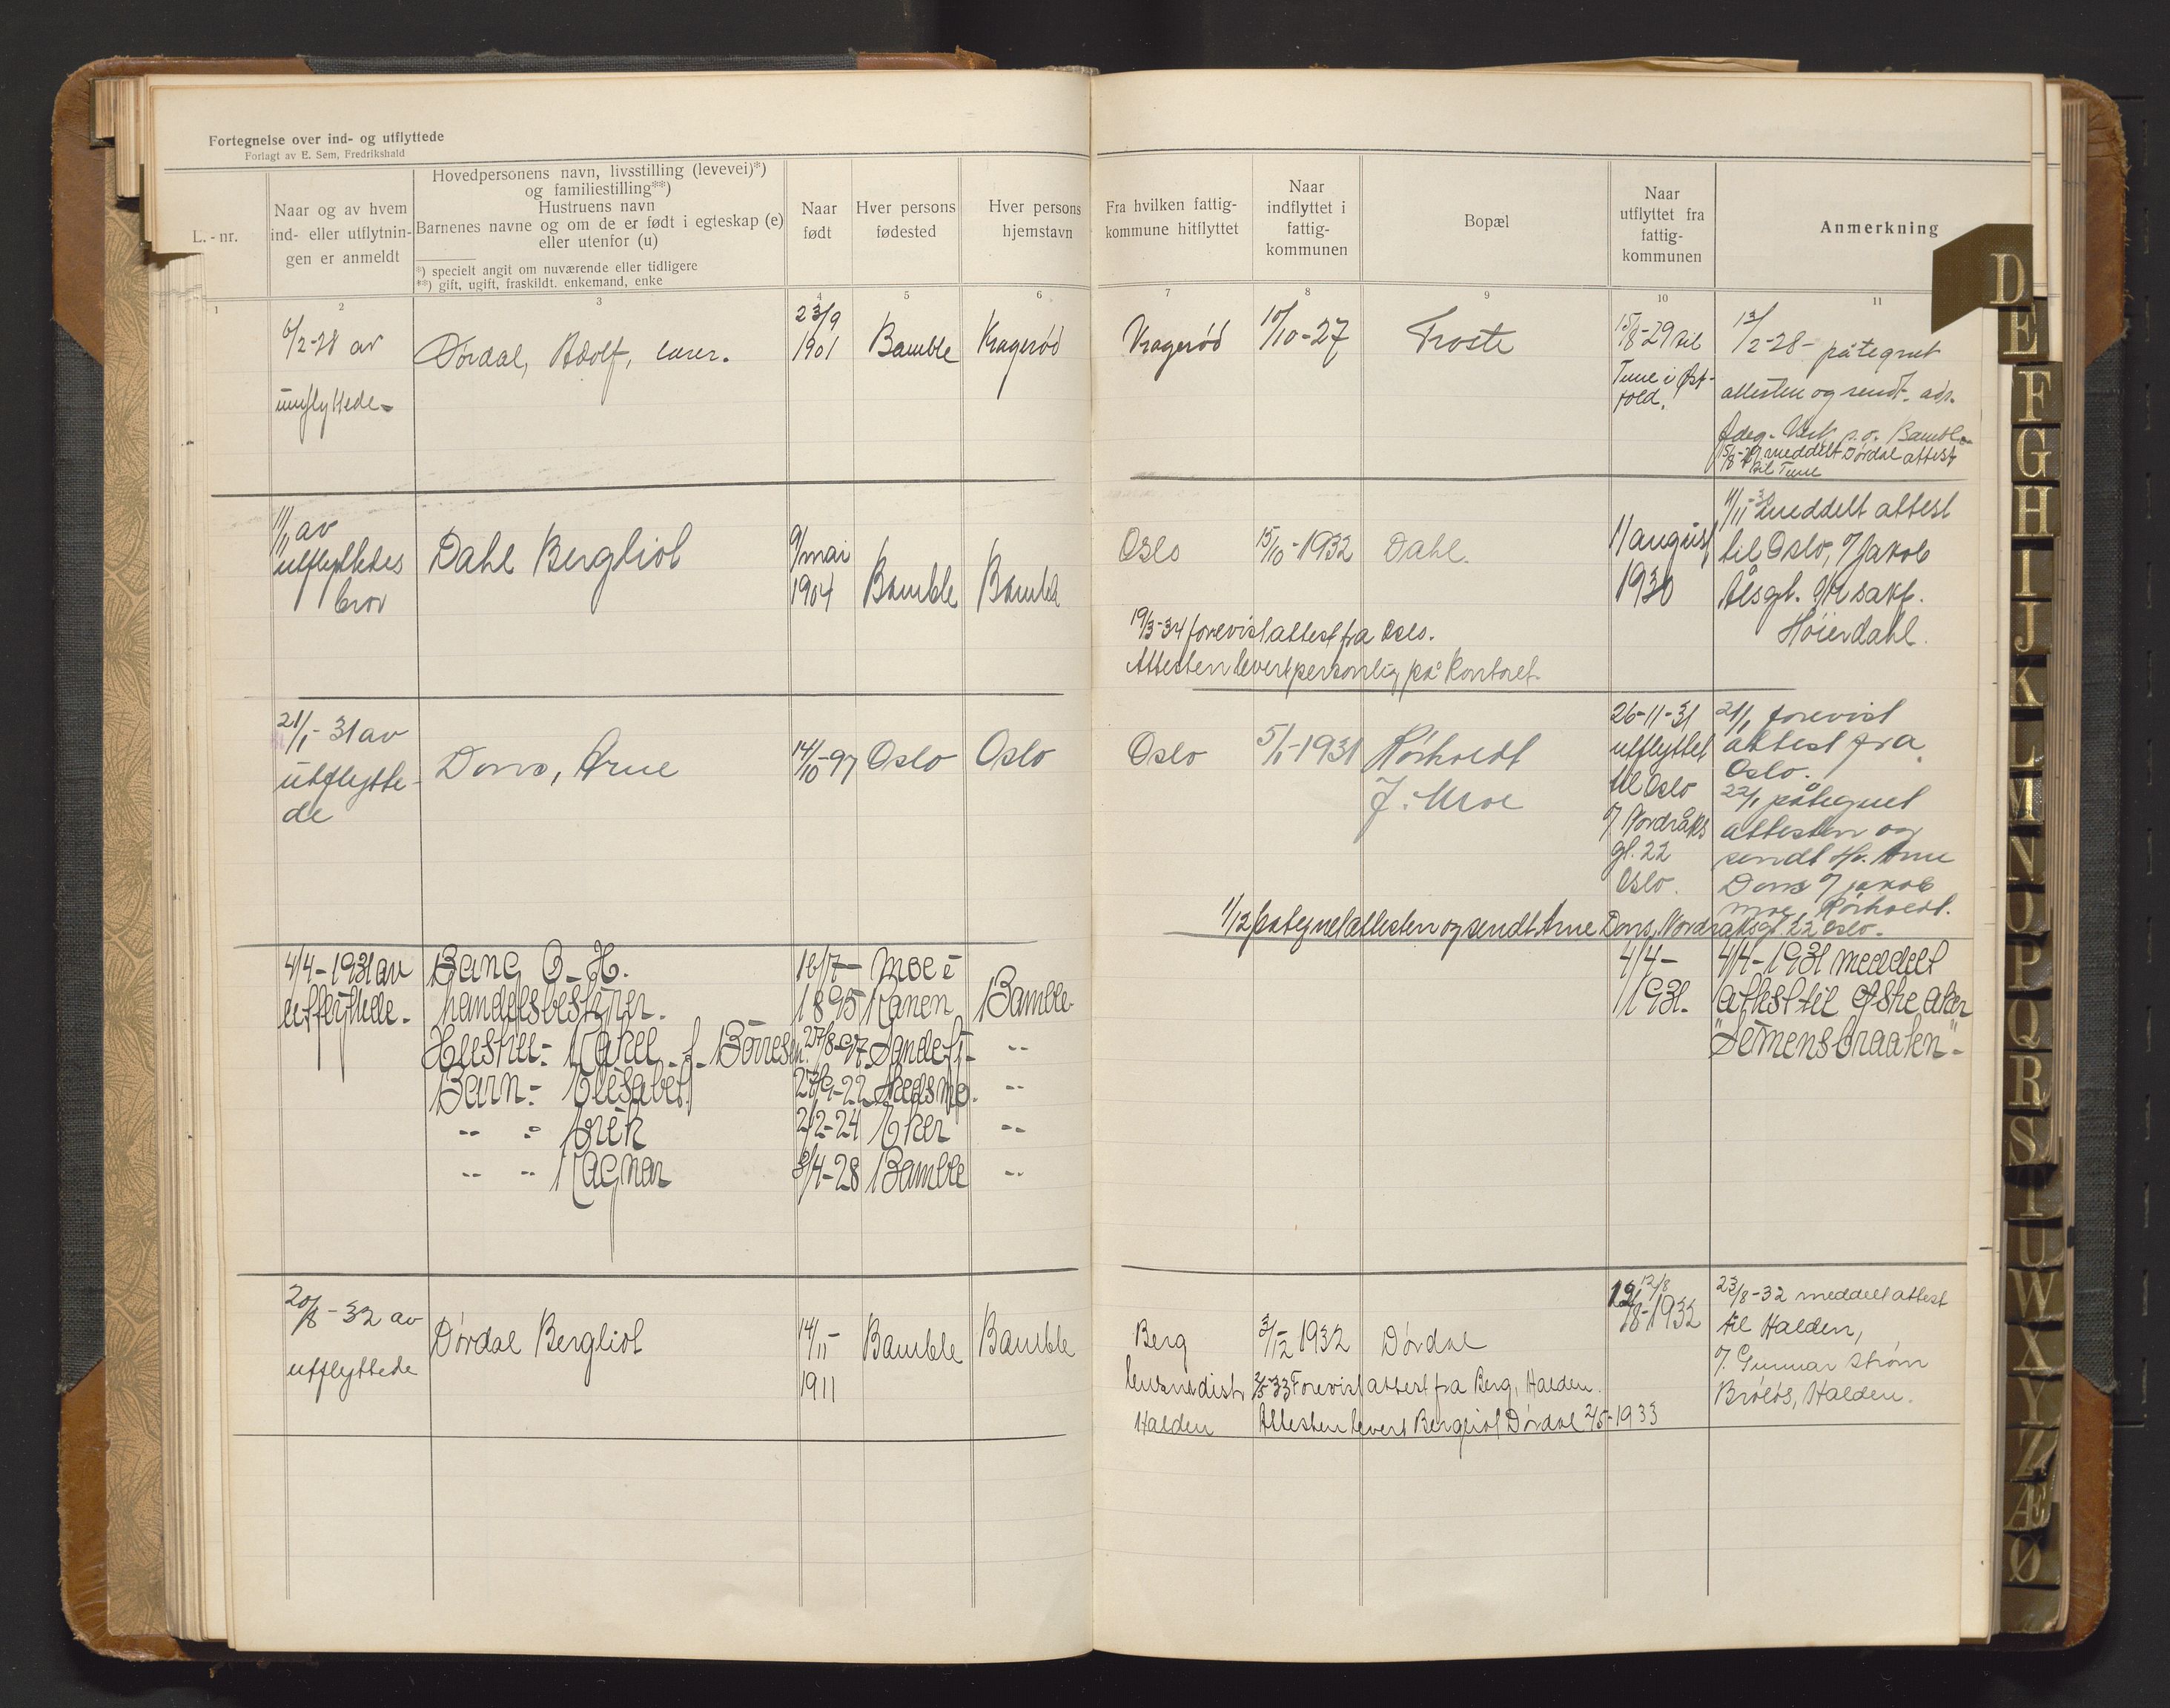 Fortegnelse over ind- og utflyttede
Forlagt av E. Sem, Fredrikshald
L.-nr.
Naar og av hvem
ind- eller utflytnin-
gen er anmeldt
Hovedpersonens navn, livsstilling (levevei)*)
og familiestilling**)
Hustruens navn
Barnenes navne og om de er født i egteskap (e)
eller utenfor (u)
*) specielt angit om nuværende eller tidligere
**) gift, ugift, fraskildt. enkemand, enke
Naar
født
Hver persons
fødested
Hver persons
hjemstavn
Fra hvilken fattig-
kommune hitflyttet
Naar
indflyttet i
fattig-
kommunen
Bopæl
Naar
utflyttet fra
fattig-
kommunen
Anmerkning
1 2 3 4 5 6 7 8 9 10 11
6/2-28 av
innflyttede-
Dørdal, Adolf, lærer.
23/9
1901
Bamble
Kragerød
Kragerød
10/10-27
Froste
15/8-29 til
Tune i Øst-
fold.
13/2-28- påtegnet
attesten og sendt. adr.
p.o. Bamble
15/8-29 meddelt Dørdal attest
til Tune
11/11 av
utflyttedes
bror
Dahl Bergliot
9/mai
1904
Bamble
Bamble
Oslo
15/10-1932
Dahl.
11 august
1930
11/11-30 meddelt attest
til Oslo, % Jakob
Ålsgt.
Høierdahl.
19/3-34 forevist attest fra Oslo.
Attesten levert personlig på kontoret.
21/1-31 av
utflytte-
de
Dons, Arne
14/10-97
Oslo
Oslo
Oslo
5/1-1931
Rørholdt
J. Moe
26-11-31
utflyttet
til Oslo
% Nordråks
gt. 22
Oslo.
21/1 forevist
attest fra
Oslo.
22/1 påtegnet
attesten og
sendt hr. Arne
Dons % Jakob
Moe, Rørholdt.
1/12 påtegnet attesten og sendt Arne Dons, Nordraksgt. 22 Oslo.
4/4-1931 av
utflyttede.
Bang O. H.
handelsbestyrer.
Hustru: Rakel f. Børresen
Barn: Elisabet
-- : Erik
-- -- Ragnar
16/7-
1895
27/8-97
27/9-22
2/2-24
8/4-28
Moe i
Ranen
Sandefj-
Skedsmo.
Aker
Bamble
Bamble
--
--
--
--
4/4-
1931.
4/4-1931 meddelt
attest til Østre Aker
"Semensbraaten"-
20/8-32 av
utflyttede
Dørdal Bergliot
14/11-
1911
Bamble
Bamble
Berg
lensmdistr
Halden
3/12 1932
Dørdal
12/8
12/8-1932
23/8-32 meddelt attest
til Halden,
%. Gunnar Strøm
Halden.
2/5-33 Forevist attest fra Berg, Halden.
Attesten levert Bergliot Dørdal 2/5-1933
D
E
F
G
H
I
J
K
L
M
N
O
P
Q
R
S
T
U
W
X
Y
Z
Æ
Ø